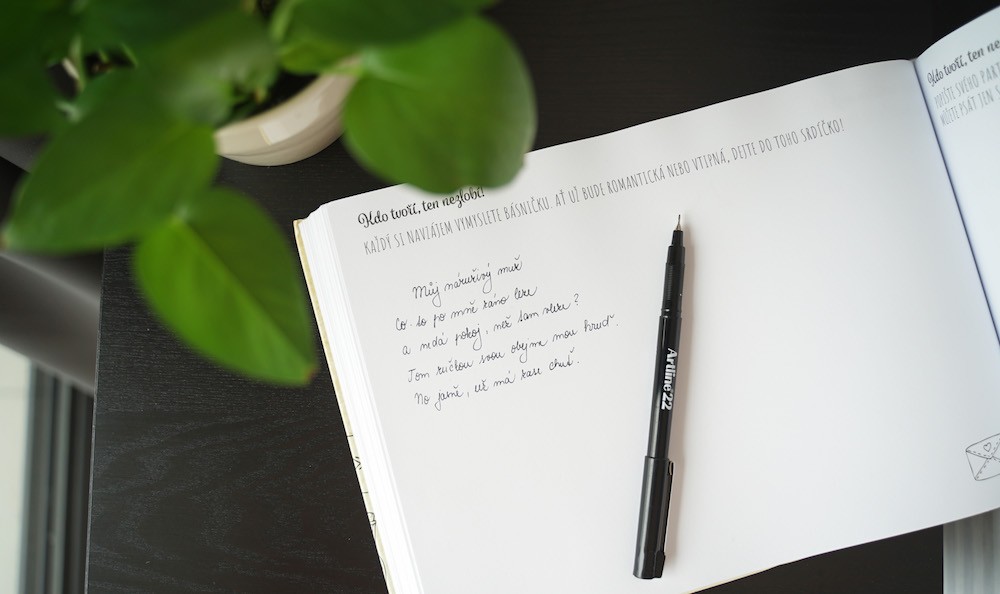 Kdo tvoří, ten nezlobí!
KAŽDÝ SI NAVZÁJEM VYMYSLETE BÁSNIČKU. AŤ UŽ BUDE ROMANTICKÁ NEBO VTIPNÁ, DEJTE DO TOHO SRDÍČKO!
Můj náruživý muž
Co to po mně ráno leze
a nedá pokoj, než tam vleze?
Tom ručkou svou obejme mou hruď.
No jasně, už má zase chuť.
Artline 22
Kdo tvoří, ten ne
SVÉHO PART
MŮŽETE PSÁT JEN S